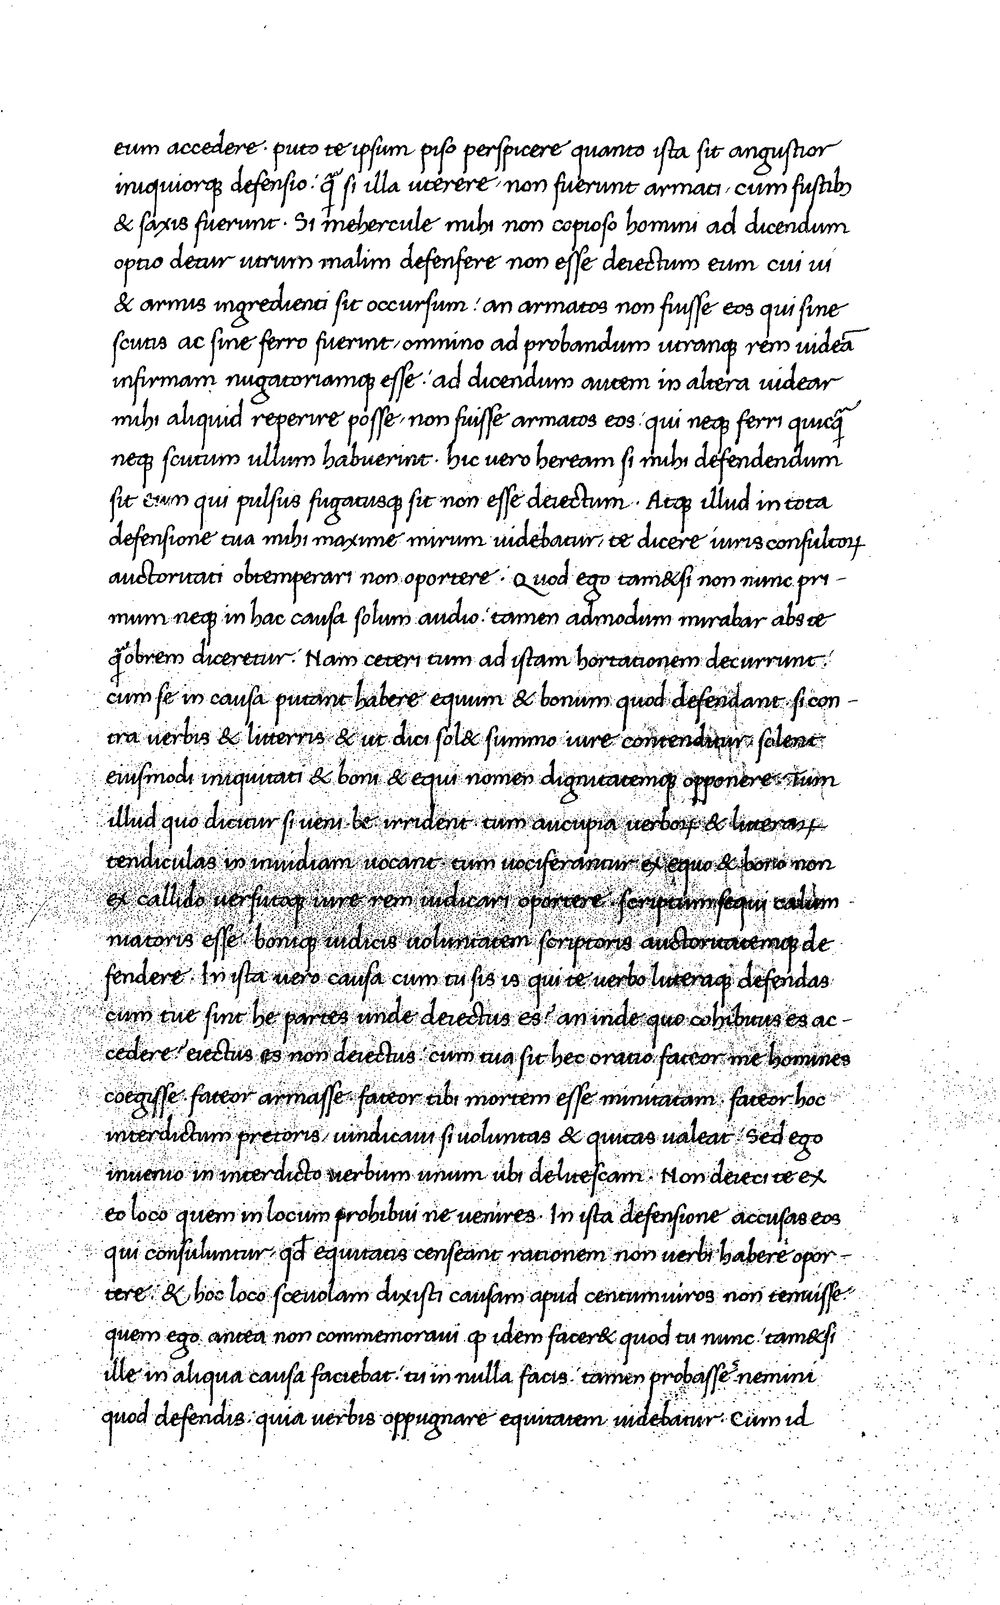 eum accedere · puto te ipsum piso perspicere quanto ista sit angustior
iniquiorq; defensio : q̃ si illa uterere / non fuerunt armati / cum fustib;
& saxis fuerunt · Si mehercule mihi non copioso homini ad dicendum
optio detur utrum malim defenfere non esse deiectum eum cui ui
& armis ingredienti sit occursum : an armatos non fuisse eos qui sine
scutis ac sine ferro fuerint / omnino ad probandum utranq; rem uideã
infirmam nugatoriamq; esse : ad dicendum autem in altera uidear
mihi aliquid reperire posse / non fuisse armatos eos : qui neq; ferri quicq̃
neq; scutum ullum habuerint · hic vero heream si mihi defendendum
sit eum qui pulsus fugatusq; sit non esse deiectum · Atq; illud in tota
defensione tua mihi maxime mirum uidebatur / te dicere iurisconsultoꝝ
auctoritati obtemperari non oportere · Quod ego tam&si non nunc pri-
mum neq; in hac causa solum audio : tamen admodum mirabar abs te
q̃obrem diceretur · Nam ceteri tum ad istam hortationem decurrunt :
cum se in causa putant habere equum & bonum quod defendant · si con-
tra uerbis & litterris & ut dici sol& summo iure contenditur · solent
eiusmodi iniquitati & boni & equi nomen dignitatemq; opponere · Tum
illud quo dicitur si ueni be · irrident · tum aucupia verboꝝ & litteraꝝ
tendiculas in inuidiam uocant · tum uociferantur ex equo & bono non
ex callido uersutoq; iure rem iudicari oportere · scriptum sequi calum-
niatoris esse · boniq; iudicis uoluntatem scriptoris auctoritatemq; de
fendere · In ista uero causa cum tu sis is qui te verbo litteraq; defendas
cum tue sint he partes unde deiectus es ? an inde quo cohibitus es ac-
cedere ? eiectus es non deiectus : cum tua sit hec oratio fateor me homines
coegisse · fateor armasse · fateor tibi mortem esse minitatam · fateor hoc
interdictum pretoris / uindicaui si uoluntas & quitas ualeat : Sed ego
inuenio in interdicto verbum unum ubi delitescam · Non deieci te ex
eo loco quem in locum prohibui ne uenires · In ista defensione accusas eos
qui consuluntur · qd̃ equitatis censeant rationem non uerbi habere opor-
tere : & hoc loco sceuolam dixisti causam apud centumuiros non tenuisse ·
quem ego antea non commemoraui ꝙ idem facer& quod tu nunc : tam&si
ille in aliqua causa faciebat : tu in nulla facis : tamen probasse nemini
quod defendis · quia uerbis oppugnare equitatem uidebatur · Cum id